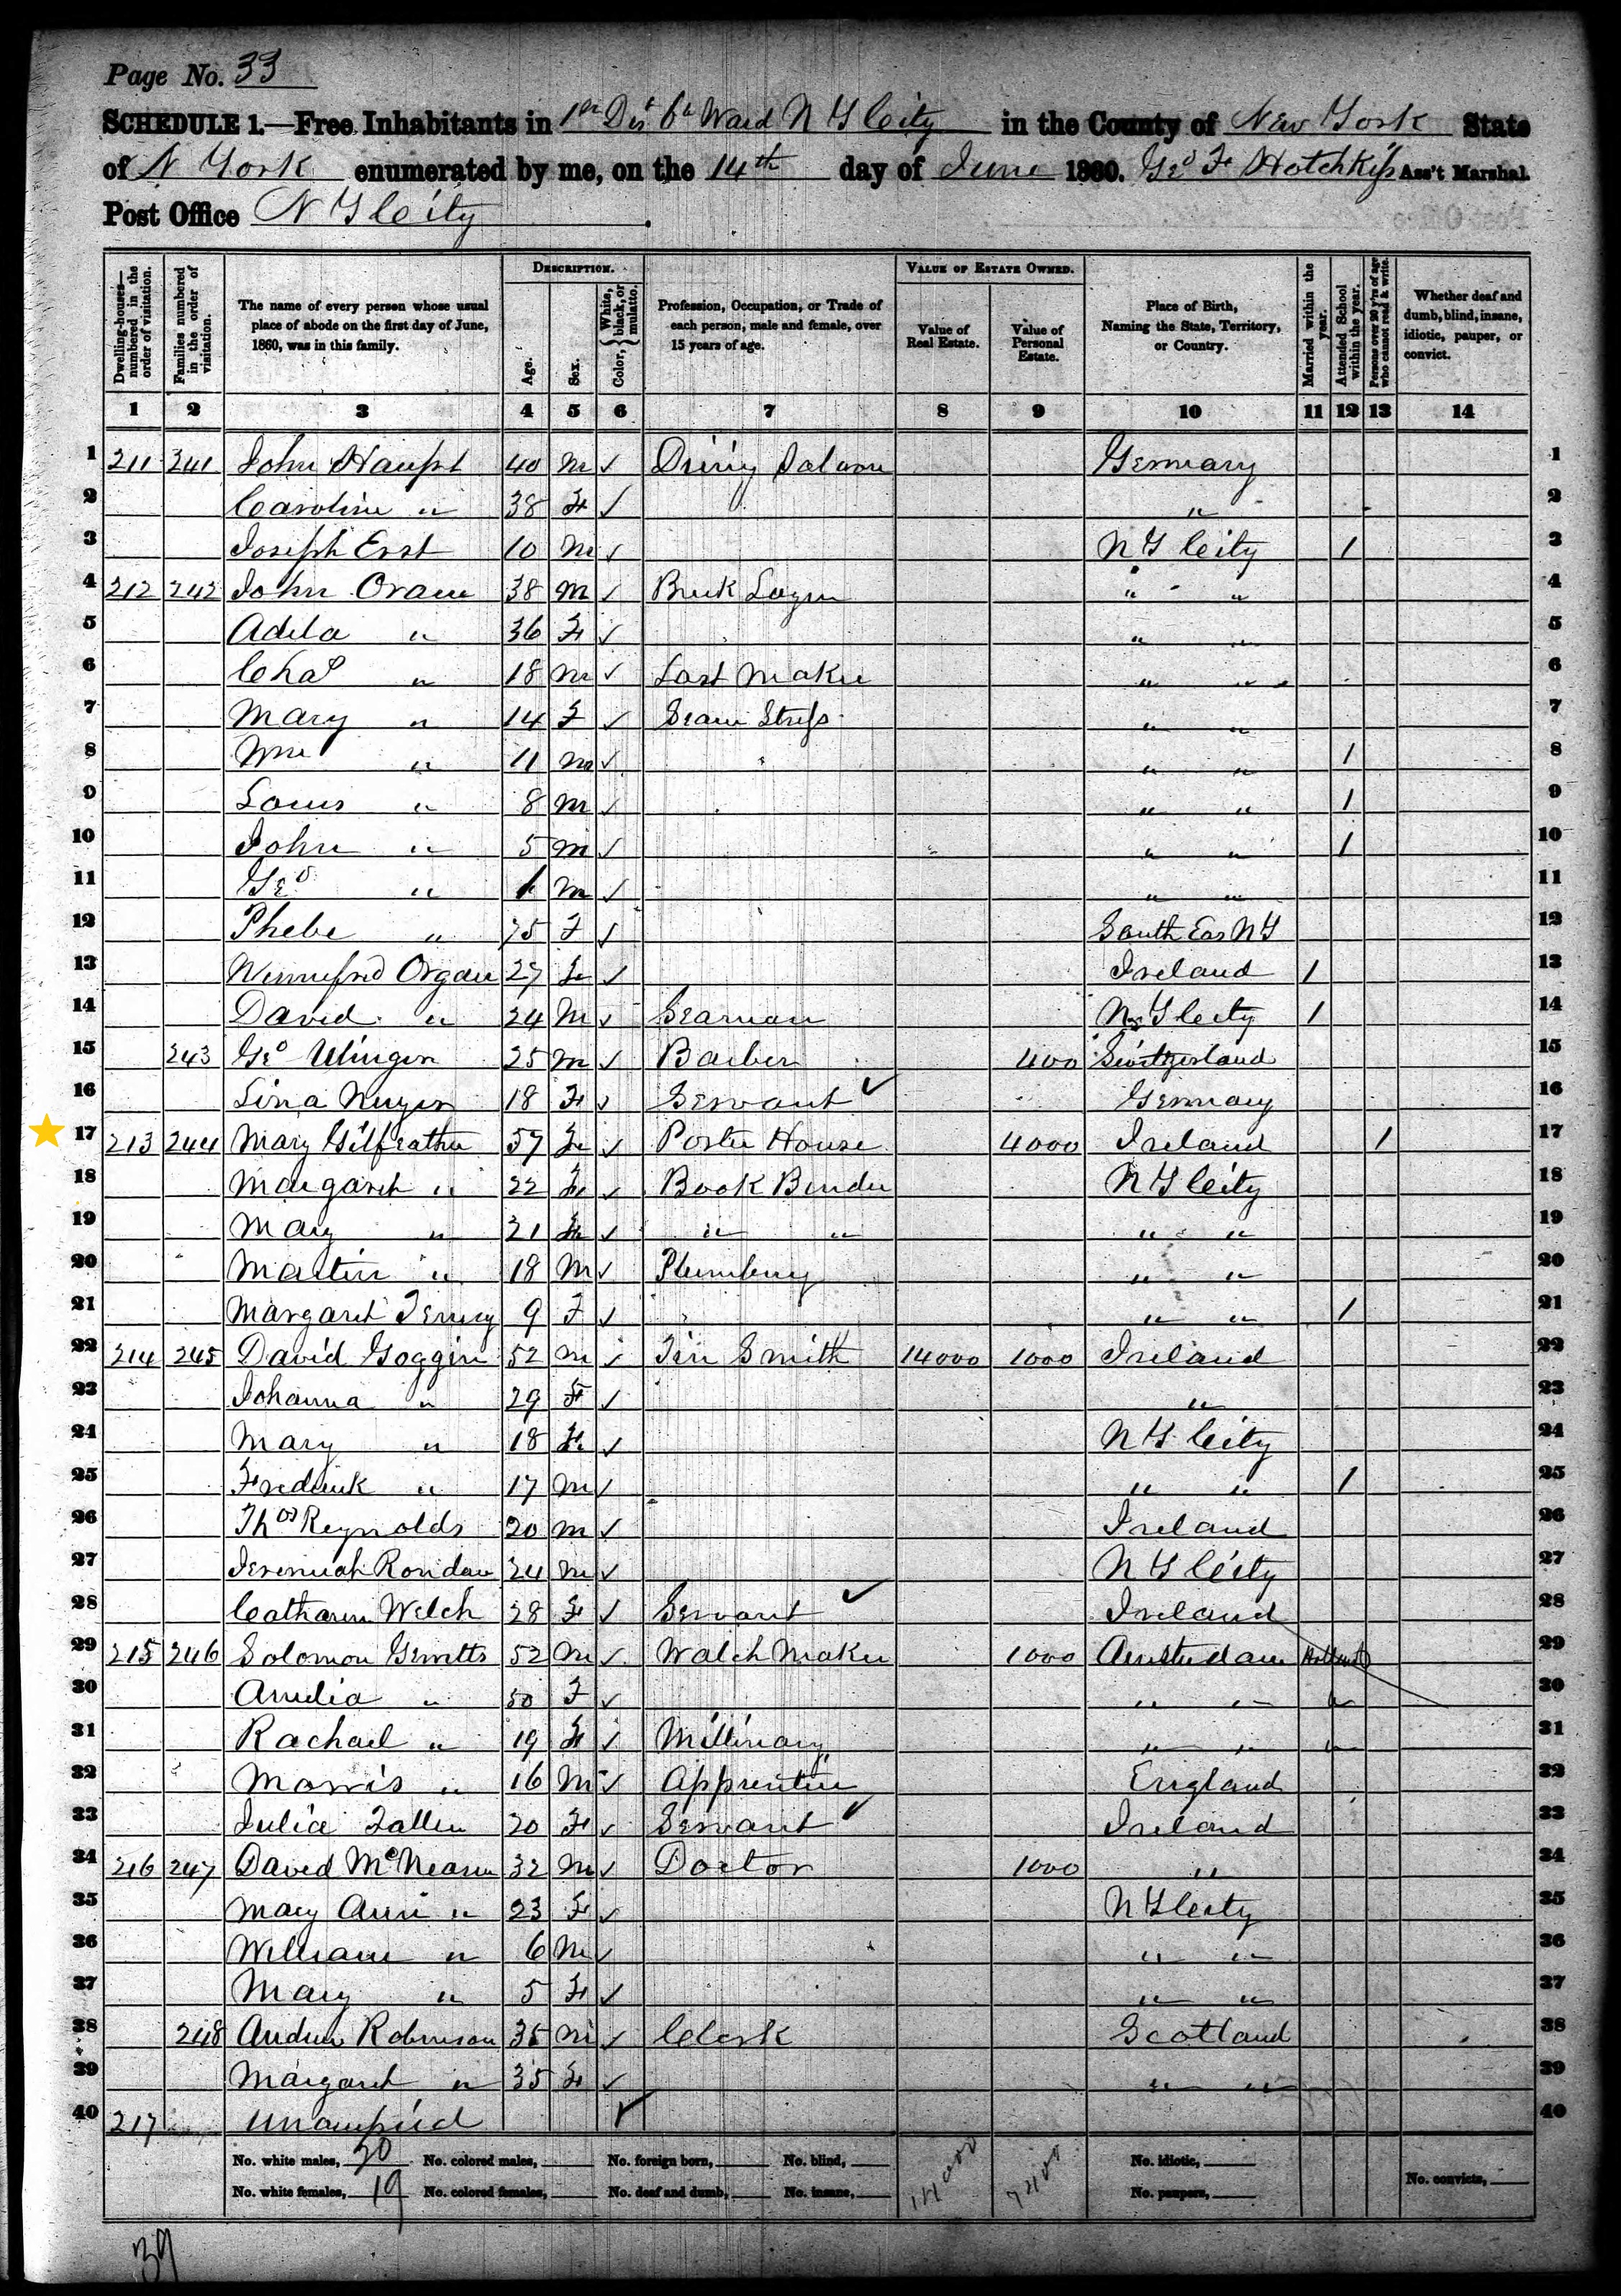 Page No. 33
SCHEDULE 1.—Free Inhabitants in 1st Dis 6th Ward N Y City in the County of New York State
of N York enumerated by me, on the 14th day of June 1860. Geo F Hotchkiss Ass't Marshal.
Post Office N Y City.
Dwelling-houses—numbered in the order of visitation.
Families numbered in the order of visitation.
The name of every person whose usual place of abode on the first day of June, 1860, was in this family.
DESCRIPTION.
Age.
Sex.
Color, {White, black, or mulatto.
Profession, Occupation, or Trade of each person, male and female, over 15 years of age.
VALUE OF ESTATE OWNED.
Value of Real Estate.
Value of Personal Estate.
Place of Birth, Naming the State, Territory, or Country.
Married within the year.
Attended School within the year.
Persons over 20 y'rs of age who cannot read & write.
Whether deaf and dumb, blind, insane, idiotic, pauper, or convict.
1 2 3 4 5 6 7 8 9 10 11 12 13 14
1 211 241 John Haupt 40 M ✓ Dining Saloon Germany 1
2 Caroline " 38 F ✓ " 2
3 Joseph Erst 10 M ✓ N Y City 1 3
4 212 242 John Oram 38 M ✓ Brick Layer " " 4
5 Adela " 36 F ✓ " " 5
6 Chas " 18 M ✓ Last Maker " " 6
7 Mary " 14 F ✓ Seam Stress " " 7
8 Wm " 11 M ✓ " " 1 8
9 Louis " 8 M ✓ " " 1 9
10 John " 5 M ✓ " " 1 10
11 Geo " 1 M ✓ " " 11
12 Phebe " 75 F ✓ South Eas N Y 12
13 Winnifred Organ 27 F ✓ Ireland 1 13
14 David " 24 M ✓ Seaman N Y City 1 14
15 243 Geo Ulinger 25 M ✓ Barber 400 Switzerland 15
16 Lina 18 F ✓ Servant ✓ Germany 16
17 213 244 Mary Gilfeather 57 F ✓ Porter House 4000 Ireland 1 17
18 Margaret " 22 F ✓ Book Binder N Y City 18
19 Mary " 21 F ✓ " " " " 19
20 Martin " 18 M ✓ Plumbing " " 20
21 Margaret 9 F ✓ " " 1 21
22 214 245 David Goggin 52 M ✓ Tin Smith 14000 1000 Ireland 22
23 Johanna " 29 F ✓ " 23
24 Mary " 18 F ✓ N Y City 24
25 Fredrick " 17 M ✓ " " 1 25
26 Thos Reynolds 20 M ✓ Ireland 26
27 Jeremiah Rondau 24 M ✓ N Y City 27
28 Catharine Welch 28 F ✓ Servant ✓ Ireland 28
29 215 246 Solomon Gerretts 52 M ✓ Watch Maker 1000 Amsterdam Holland 29
30 Amelia " 50 F ✓ " " " 30
31 Rachael " 19 F ✓ Millinary " " " 31
32 Morris " 16 M ✓ Apprentice England 32
33 Julia Fallen 20 F ✓ Servant ✓ Ireland 33
34 216 247 David 32 M ✓ Doctor 1000 " 34
35 Mary Ann " 23 F ✓ N Y City 35
36 William " 6 M ✓ " " 36
37 Mary " 5 F ✓ " " 37
38 248 Andrew Robinson 35 M ✓ Clerk Scotland 38
39 Margaret " 35 F ✓ " " 39
40 217 Unoccupied ✓ 40
No. white males, 20 No. colored males, No. foreign born, No. blind, 14000 7400 No. idiotic,
No. white females, 19 No. colored females, No. deaf and dumb, No. insane, No. paupers, No. convicts,
39